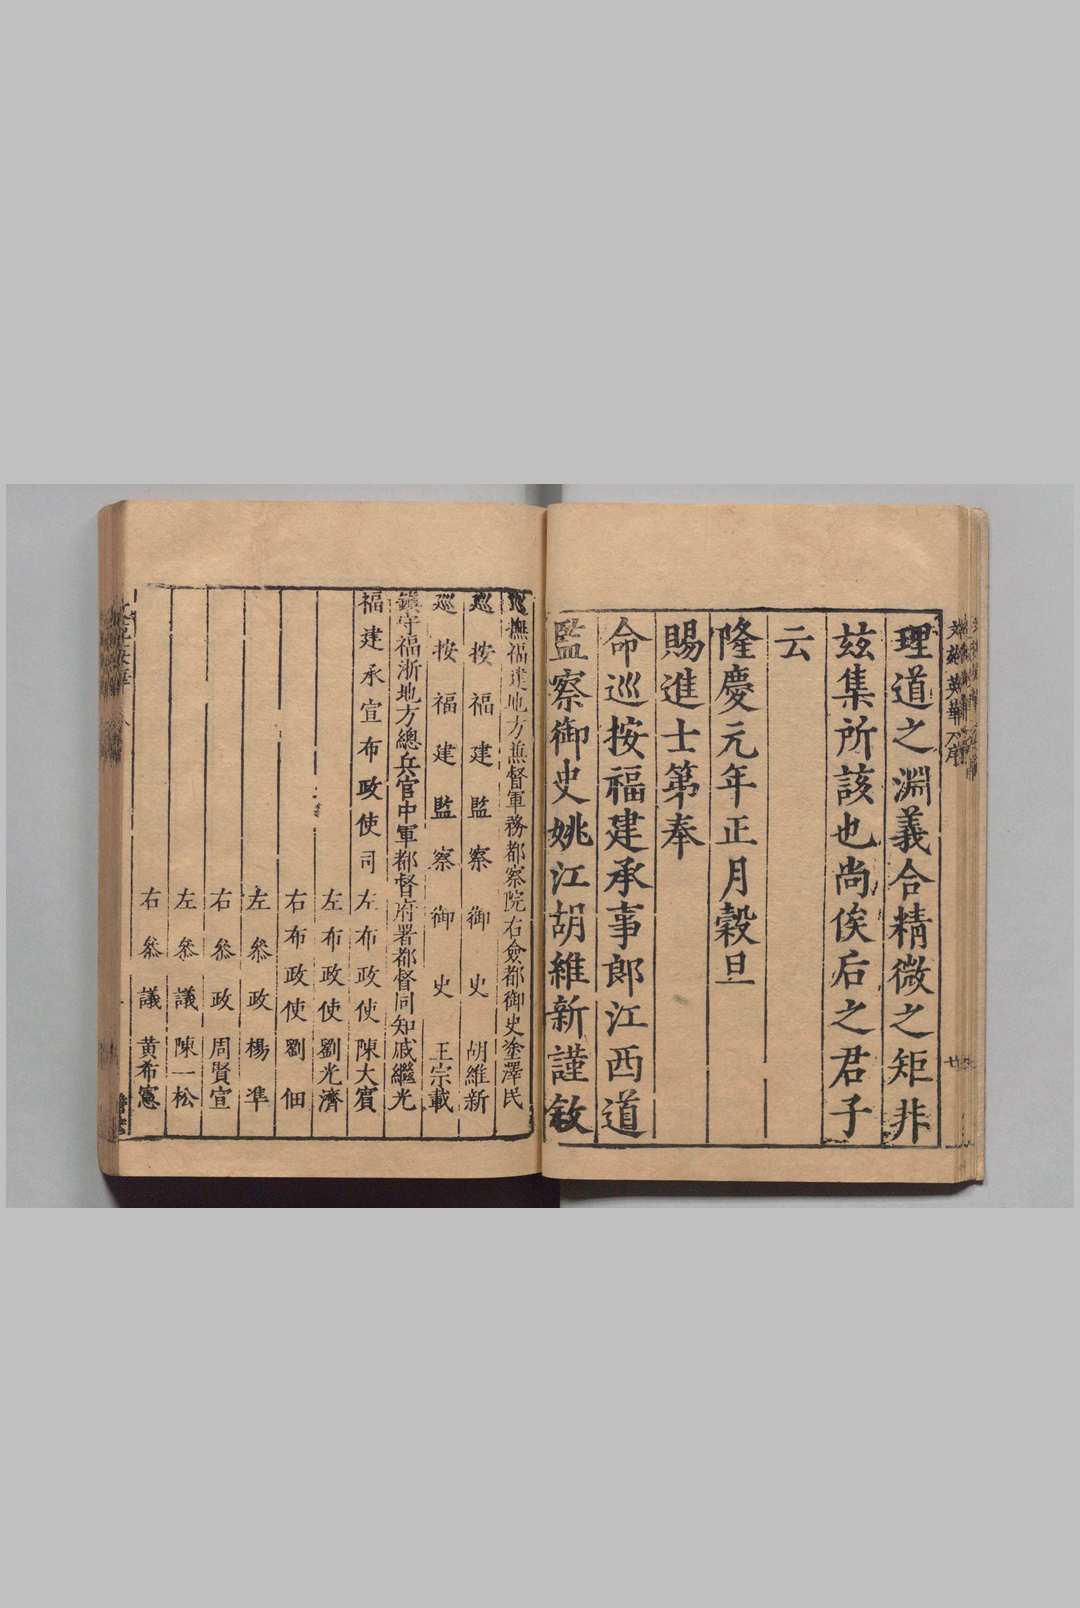 文苑英華 序
理道之淵義合精微之矩非
茲集所該也尚俟后之君子
云
隆慶元年正月穀旦
賜進士第奉
命巡按福建承事郎江西道
監察御史姚江胡維新謹敘
巡撫福建地方兼督軍務都察院右僉都御史塗澤民
巡按福建監察御史 胡維新
巡按福建監察御史 王宗載
鎮守福浙地方總兵官中軍都督府署都督同知戚繼光
福建承宣布政使司左布政使陳大賓
左布政使劉光濟
右布政使劉佃
左叅政楊準
右叅政周賢宣
左叅議陳一松
右叅議黃希憲